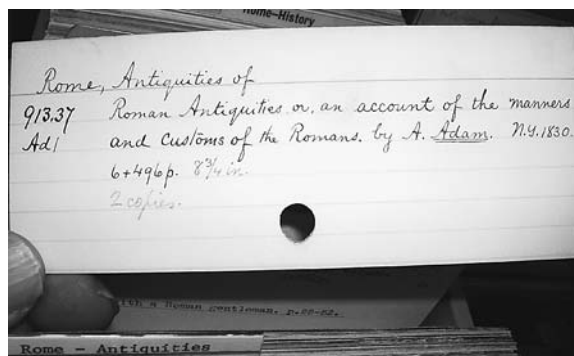 Rome-History
Rome, Antiquities of
913.37 Roman Antiquities or, an account of the manners
Ad1 and Customs of the Romans. by A. Adam. N.Y. 1830.
6+496p. 8 3/4 in.
2 copies.
with a Roman gentleman. p.28-82.
Rome - Antiquities